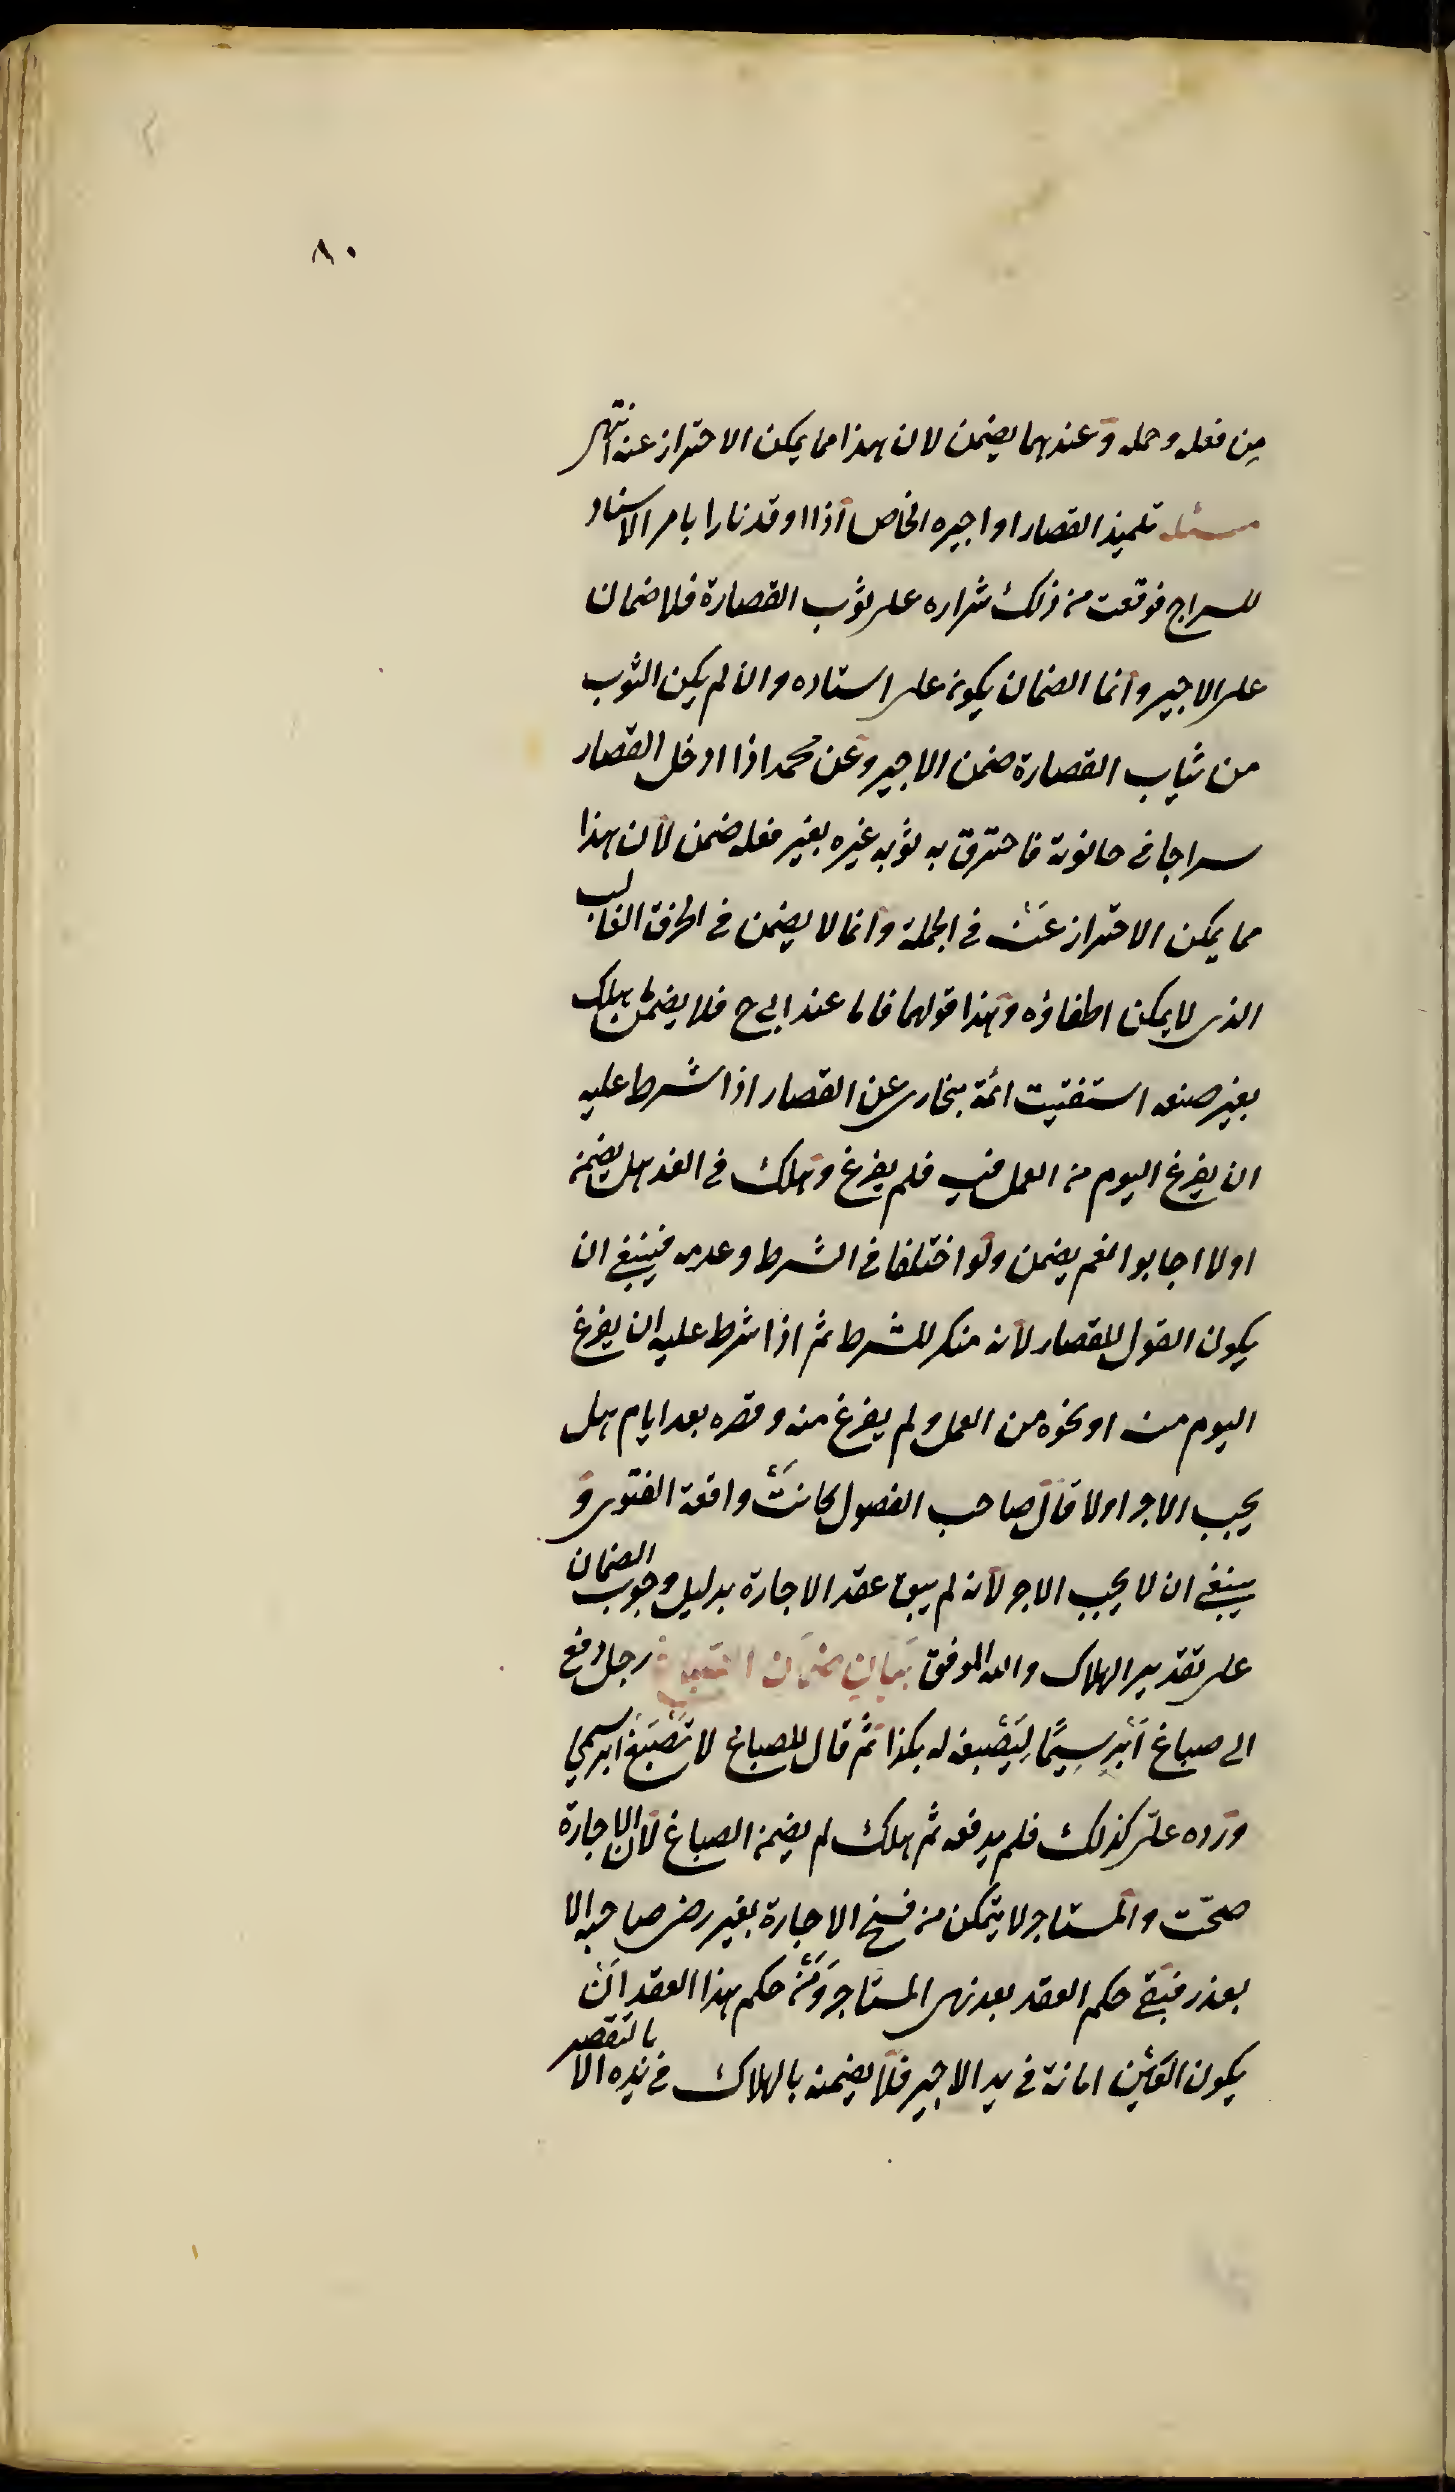 ٨٠
من فعله وحمله وعندهما يضمن لان هذا مما يمكن الاحتراز عنه انتهى
مسئلة تلميذ القصار او اجيره الخاص اذا اوقد نارا بامر الاستاد
للسراج فوقعت من ذلك شراره على ثوب القصارة فلا ضمان
على الاجير وانما الضمان يكون على استاده وان لم يكن الثوب
من ثياب القصارة ضمن الاجير وعن محمد اذا ادخل القصار
سراجا في حانوته فاحترق به ثوب غيره بغير فعله ضمن لان هذا
مما يمكن الاحتراز عنه في الجملة وانما لا يضمن في الحرق الغالب
الذى لا يمكن اطفاؤه وهذا قولهما فاما عند ابي ح فلا يضمن هلك
بغير صنعه استفتيت ائمة بخارى عن القصار اذا شرط عليه
ان يفرغ اليوم من العمل فيه فلم يفرغ وهلك في الغد هل يضمن
اولا اجابوا نعم يضمن ولو اختلفا في الشرط وعدمه فينبغي ان
يكون القول للقصار لانه منكر للشرط ثم اذا شرط عليه ان يفرغ
اليوم منه او نحوه من العمل ولم يفرغ منه وقصره بعد ايام هل
يجب الاجر اولا قال صاحب الفصول كانت واقعة الفتوى و
ينبغي ان لا يجب الاجر لانه لم يبق عقد الاجارة بدليل وجوب الضمان
على تقدير الهلاك والله الموفق بيان ضمان الصباغ رجل دفع
الى صباغ ابريسما ليصبغه له بكذا ثم قال للصباغ لا تصبغ ابريسمي
ورده على كذلك فلم يدفعه ثم هلك لم يضمن الصباغ لان الاجارة
صحت والمستاجر لا يتمكن من فسخ الاجارة بغير رضى صاحبه الا
بعذر فبقي حكم العقد بعد نهى المستاجر ومن حكم هذا العقد ان
يكون العين امانة في يد الاجير فلا يضمنه بالهلاك في يده الا بالتقصير